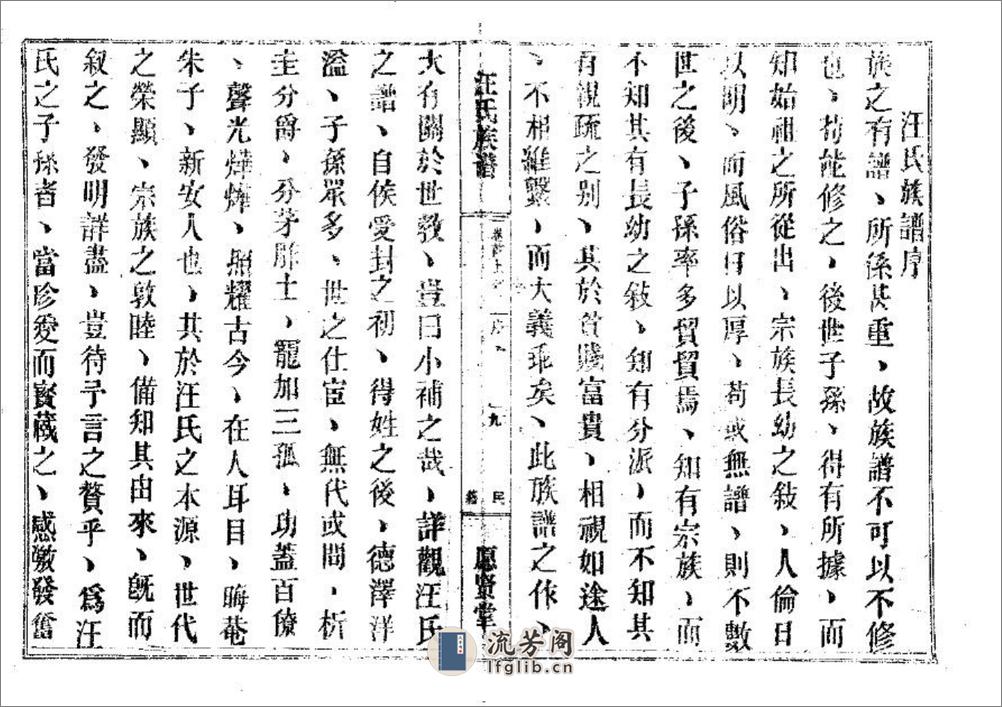 汪氏族譜序
族之有譜、所係甚重、故族譜不可以不修
也、苟能修之、後世子孫、得有所據、而
知始祖之所從出、宗族長幼之敍、人倫日
以明、而風俗日以厚、苟或無譜、則不數
世之後、子孫率多貿貿焉、知有宗族、而
不知其有長幼之敍、知有分派、而不知其
有親疏之别、其於貧賤富貴、相視如途人
、不相維繫、而大義乖矣、此族譜之作、
汪氏族譜
卷首上
序
九
民
籍
愿賢堂
大有關於世敎、豈曰小補之哉、詳觀汪氏
之譜、自侯爱封之初、得姓之後、德澤洋
溢、子孫眾多、世之仕宦、無代或間、析
圭分爵、分茅胙土、寵加三孤、功蓋百僚
、聲光燁燁、照耀古今、在人耳目、晦菴
朱子、新安人也、其於汪氏之本源、世代
之榮顯、宗族之敦睦、備知其由來、旣而
叙之、發明詳盡、豈待予言之贅乎、爲汪
氏之子孫者、當珍愛而寳藏之、感激發奮
流芳阁
lfglib.cn